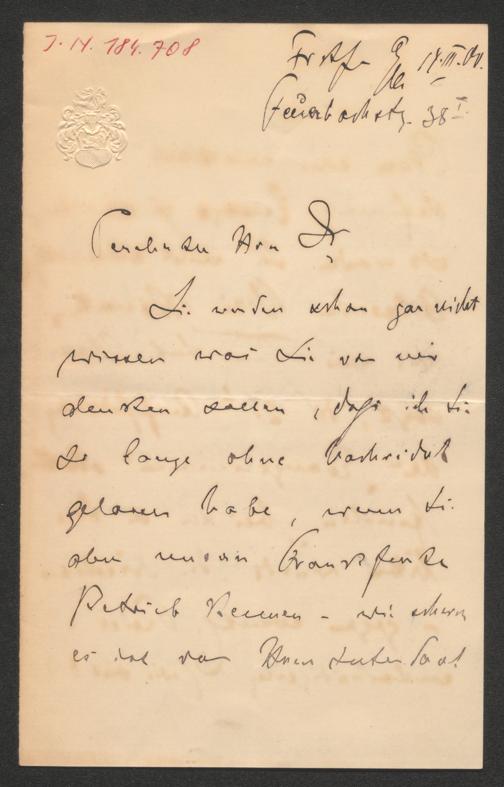 J.N. 184.708
Frkf a/M 17.II.00.
Feuerbachstr. 38 I
Geehrter Herr Dr
Sie werden schon gar nicht
wissen was Sie von mir
denken sollen, daß ich Sie
so lange ohne Nachricht
gelassen habe, wenn Sie
aber unsern Frankfurter
Betrieb kennen – wie schwer
es ist von Herrn